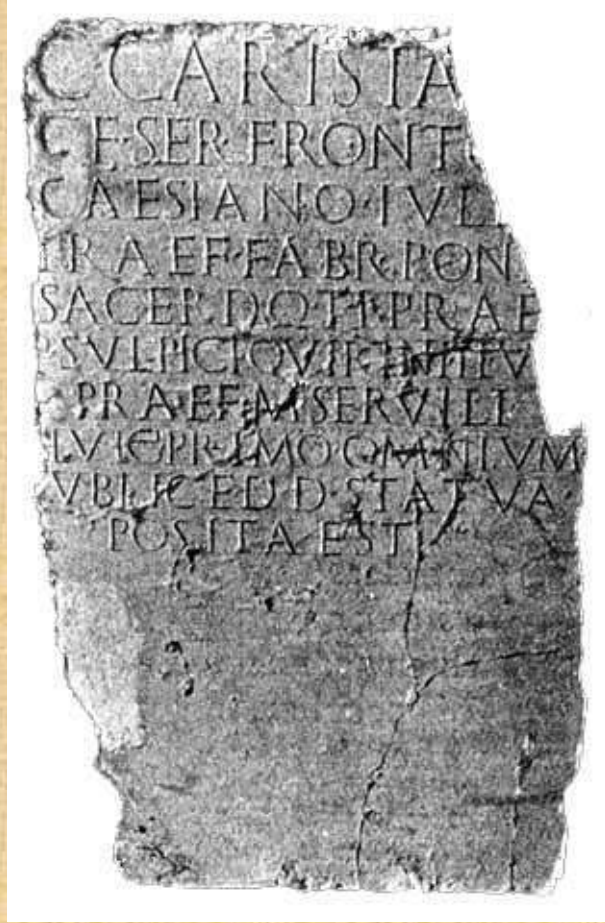 C CARISTA
C·F·SER·FRONTO
CAESIANO·IVLI
PRAEF·FABR·PON
SACERDOTI·PRAEF
P·SVLPICI QVIRINI II V
PRAEF·M·SERVILI
HVIC PRIMO OMNIVM
VBLICE D D·STATVA
POSITA EST